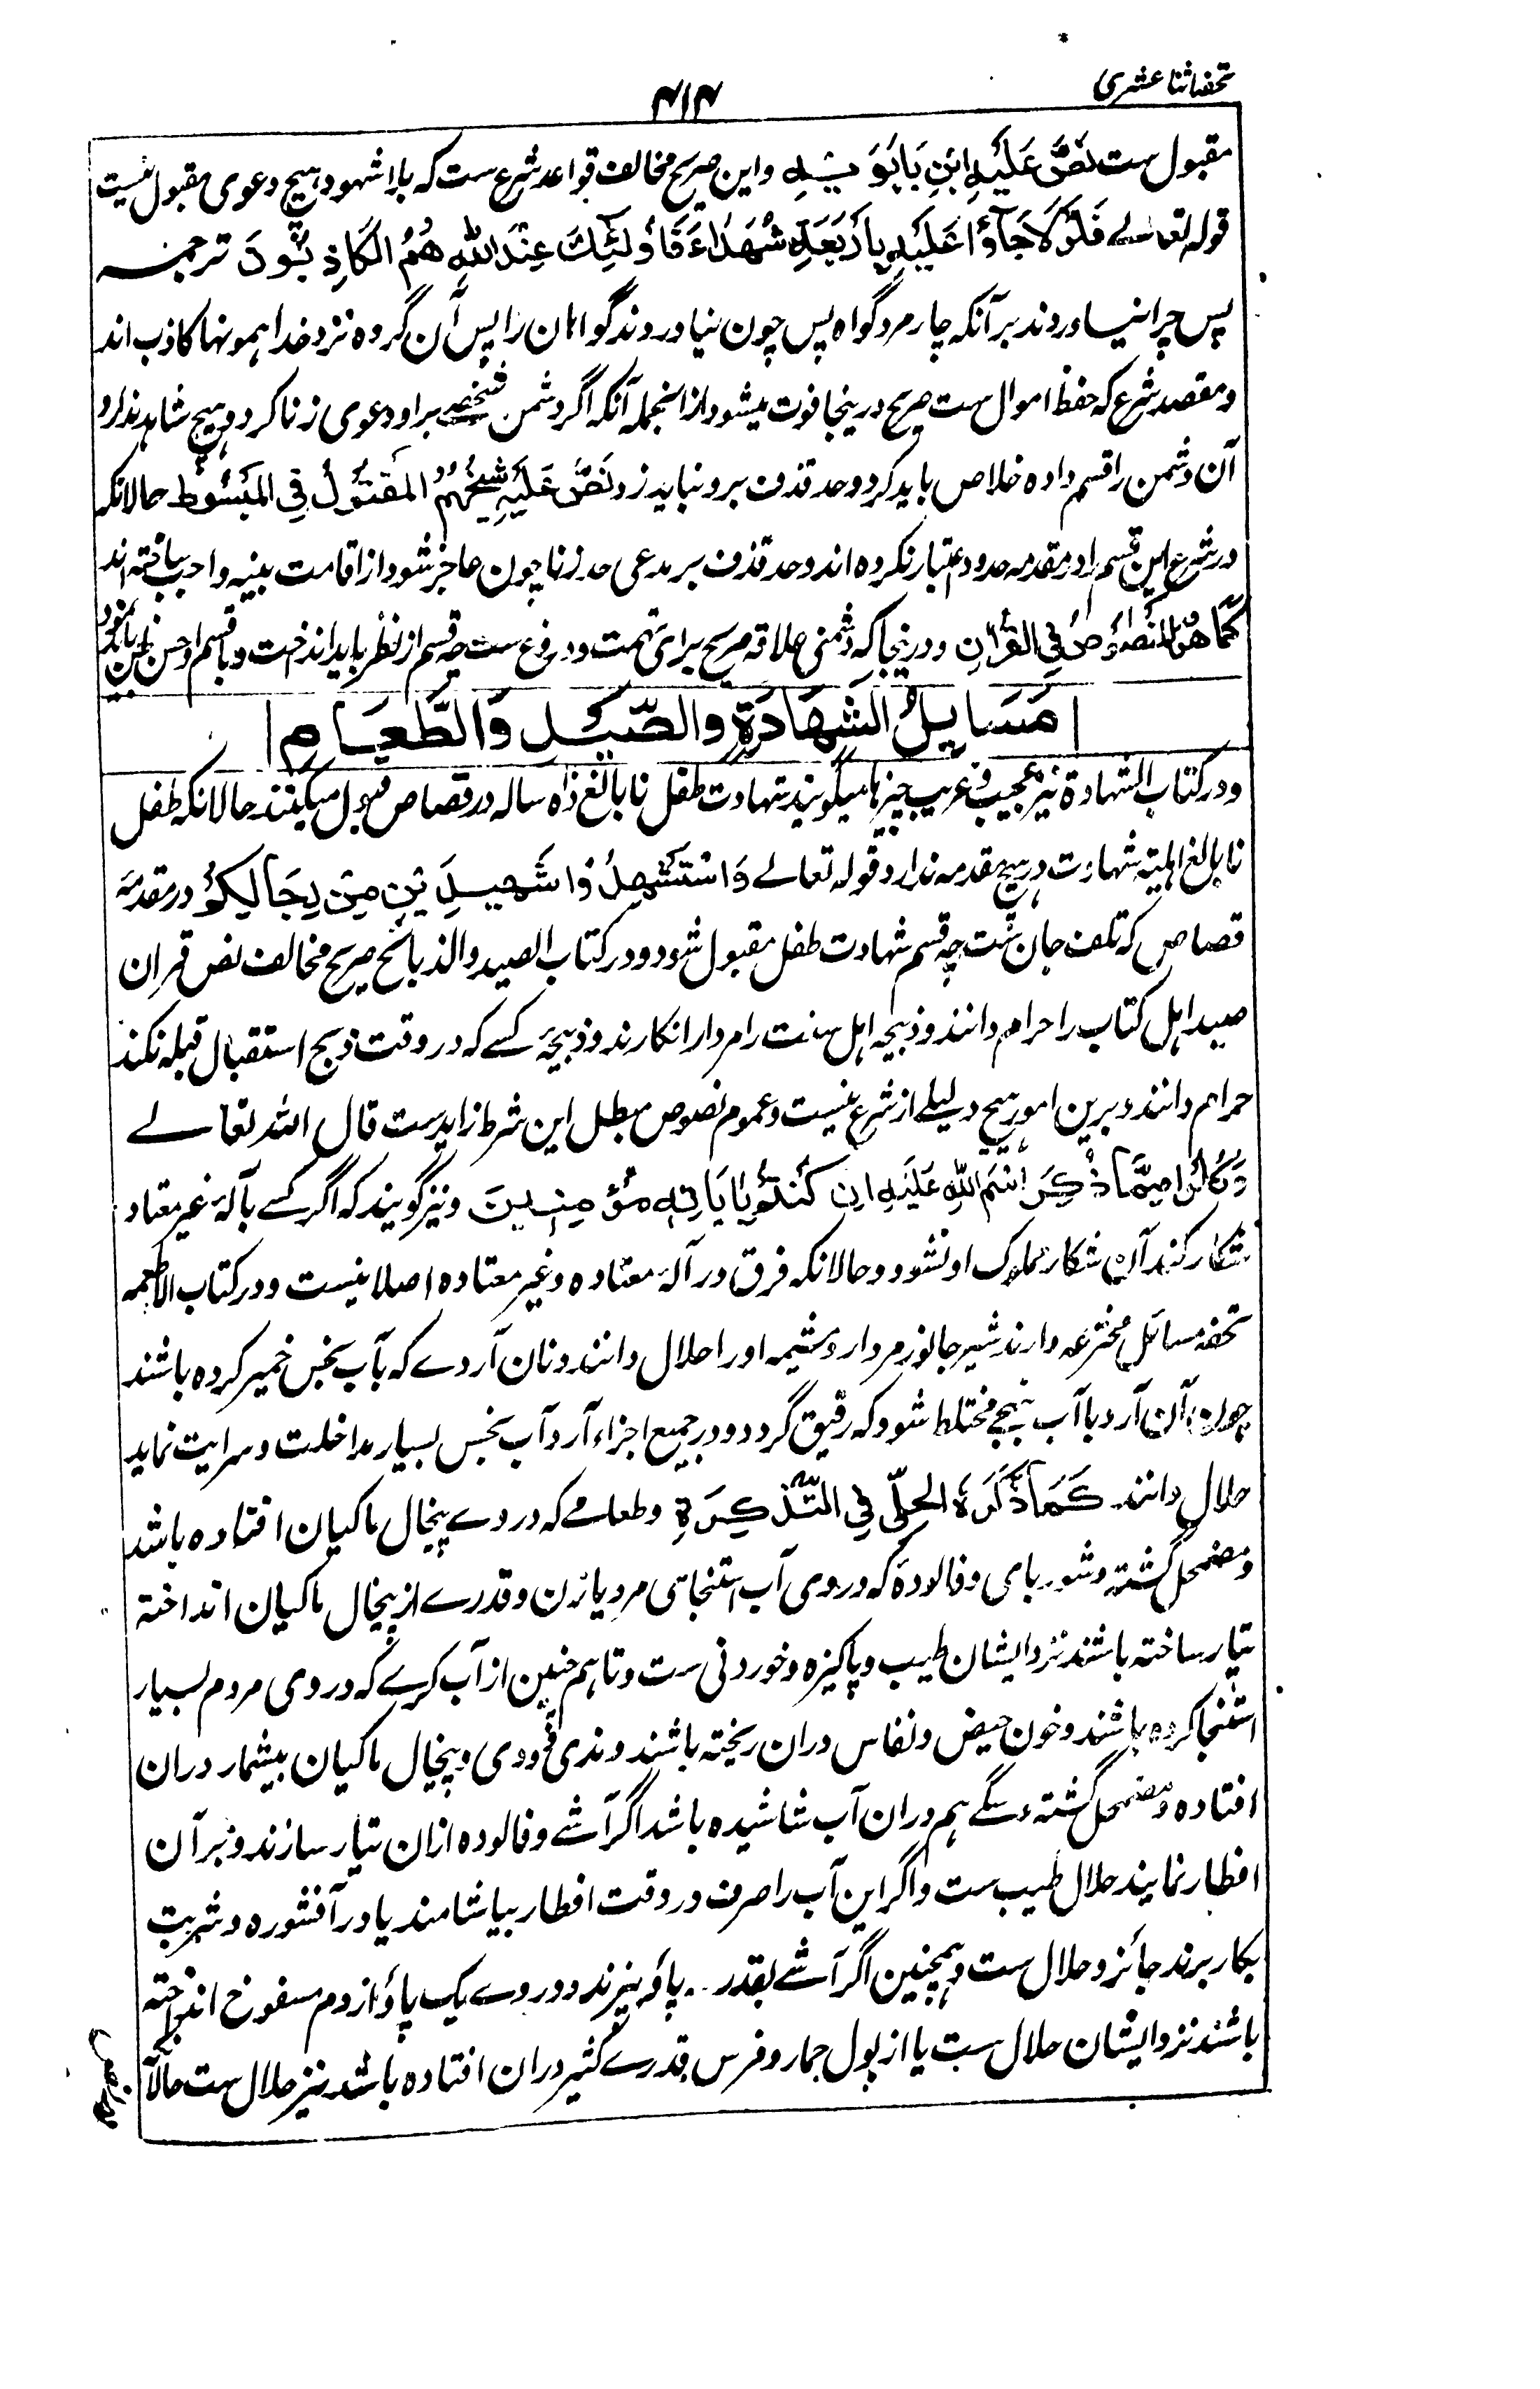 تحفۂ اثنا عشری
۴۱۴
مقبول ست نَصَّ عَلَیْهِ ابْنِ بَابُوَیْهِ واین صریح مخالف قواعد شرع ست که بلا شهود هیچ دعوی مقبول نیست
قوله تعالے فَلَوْ لَا جَآؤُا عَلَیْهِ بِاَرْبَعَةِ شُهَدَاءَ فَاُولٰٓئِكَ عِنْدَ اللّٰهِ هُمُ الْكَاذِبُوْنَ ترجمه
پس چرا نیاوردند بر آنکه چار مرد گواه پس چون نیاوردند گواهان را پس آن گروه نزد خدا همونها کاذب اند
و مقصد شرع که حفظ اموال ست صریح درینجا فوت میشود ازانجمله آنکه اگر دشمن شخصے بر او دعوی زنا کرد و هیچ شاهد ندارد
آن دشمن را قسم داده خلاص باید کرد و حد قذف برو نباید زد نَصَّ عَلَیْهِ شَیْخُهُمُ الْمَقْتُوْلُ فِی الْمَبْسُوْطِ حالانکه
در شرع این قسم را در مقدمه حدود اعتبار نکرده اند و حد قذف بر مدعی حد زنا چون عاجز شود از اقامت بینه واجب ساخته اند
كَمَا هُوَ الْمَنْصُوْصُ فِی الْقُرْاٰنِ و درینجا که دشمنی علاقه صریح برای تهمت و دروغ ست چه قسم از نظر باید انداخت و با قسم او حسن ظن باید نمود
مَسَایِلُ الشَّهَادَةِ وَالصَّیْدِ وَالطَّعَامِ
و در کتاب الشهادة نیز عجیب و غریب چیزها میگویند شهادت طفل نابالغ ده ساله در قصاص قبول میکنند حالانکه طفل
نابالغ اهلیت شهادت در هیچ مقدمه ندارد قوله تعالے وَاسْتَشْهِدُوْا شَهِیْدَیْنِ مِنْ رِجَالِكُمْ در مقدمه
قصاص که تلف جان ست چه قسم شهادت طفل مقبول شود و در کتاب الصید والذبائح صریح مخالف نص قران
صید اهل کتاب را حرام دانند و ذبیحه اهل سنت را مردار انکارند و ذبیحۂ کسے که در وقت ذبح استقبال قبله نکند
حرام دانند و برین امور هیچ دلیلے از شرع نیست و عموم نصوص مبطل این شرط زاید ست قال الله تعالے
وَكُلُوْا مِمَّا ذُكِرَ اسْمُ اللّٰهِ عَلَیْهِ اِنْ كُنْتُمْ بِاٰیَاتِهٖ مُؤْمِنِیْنَ و نیز گویند که اگر کسے بآلۂ غیر معتاد
شکار کند آن شکار مملوک او نشود و حالانکه فرق در آلۂ معتاده و غیر معتاده اصلا نیست و در کتاب الاطعمه
تحفه مسائل مخترعه دارند شیر جانور مردار و مشیمه او را حلال دانند و نان آردے که بآب نجس خمیر کرده باشند
چون آن آرد با آب نهجے مختلط شود که رقیق گردد و در جمیع اجزاء آرد آب نجس بسیار مداخلت و سرایت نماید
حلال دانند كَمَا ذَكَرَهُ الْحِلِّی فِی التَّذْكِرَةِ و طعامے که در وے پیخال ماکیان افتاده باشد
و مضمحل گشته و شوربای و فالودۂ که در وی آب استنجای مرد یا زن و قدرے از پیخال ماکیان انداخته
تیار ساخته باشند نزد ایشان طیب و پاکیزه و خوردنی ست و تا هم چنین از آب کرے که در وی مردم بسیار
استنجا کرده باشند و خون حیض و نفاس دران ریخته باشند و مذی و ودی و پیخال ماکیان بیشمار دران
افتاده و مضمحل گشته و سگے هم دران آب شاشیده باشد اگر آشے و فالوده ازان تیار سازند و بر آن
افطار نمایند حلال طیب ست و اگر این آب را صرف در وقت افطار بیاشامند یا در آفشوره و شربت
بکار برند جائز و حلال ست و همچنین اگر آشے بقدر پاؤ بپزند و در وے یک پاؤ از دم مسفوح انداخته
باشند نزد ایشان حلال ست یا از بول حمار و فرس قدرے کثیر دران افتاده باشد نیز حلال ست حالانکه